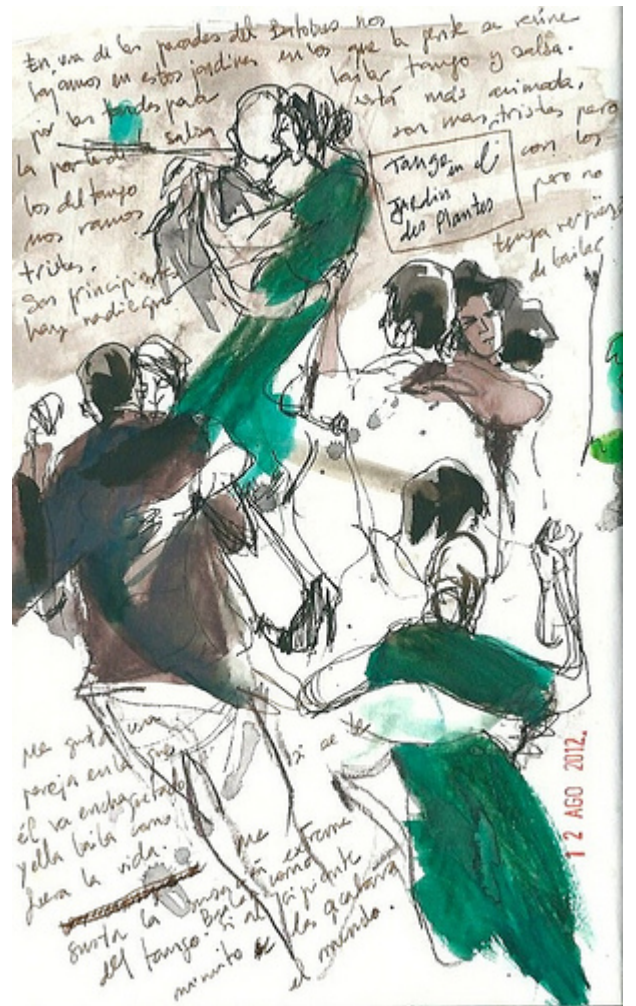 En una de las paradas del Batobus nos
bajamos en estos jardines en los que la gente se reúne
por las tardes para bailar tango y salsa.
La parte de salsa está más animada,
los del tango son mas tristes pero
nos vamos con los
tristes.
Son principiantes pero no
hay nadie que tenga vergüenza
de bailar
Tango en el
Jardin
des Plantes
Me gusta una
pareja en la que
él va enchaquetado
y ella baila como
si se le
fuera la vida.
me
gusta la
del tango. Baila como
si al siguiente
minuto se les acabara
el mundo.
12 AGO 2012.